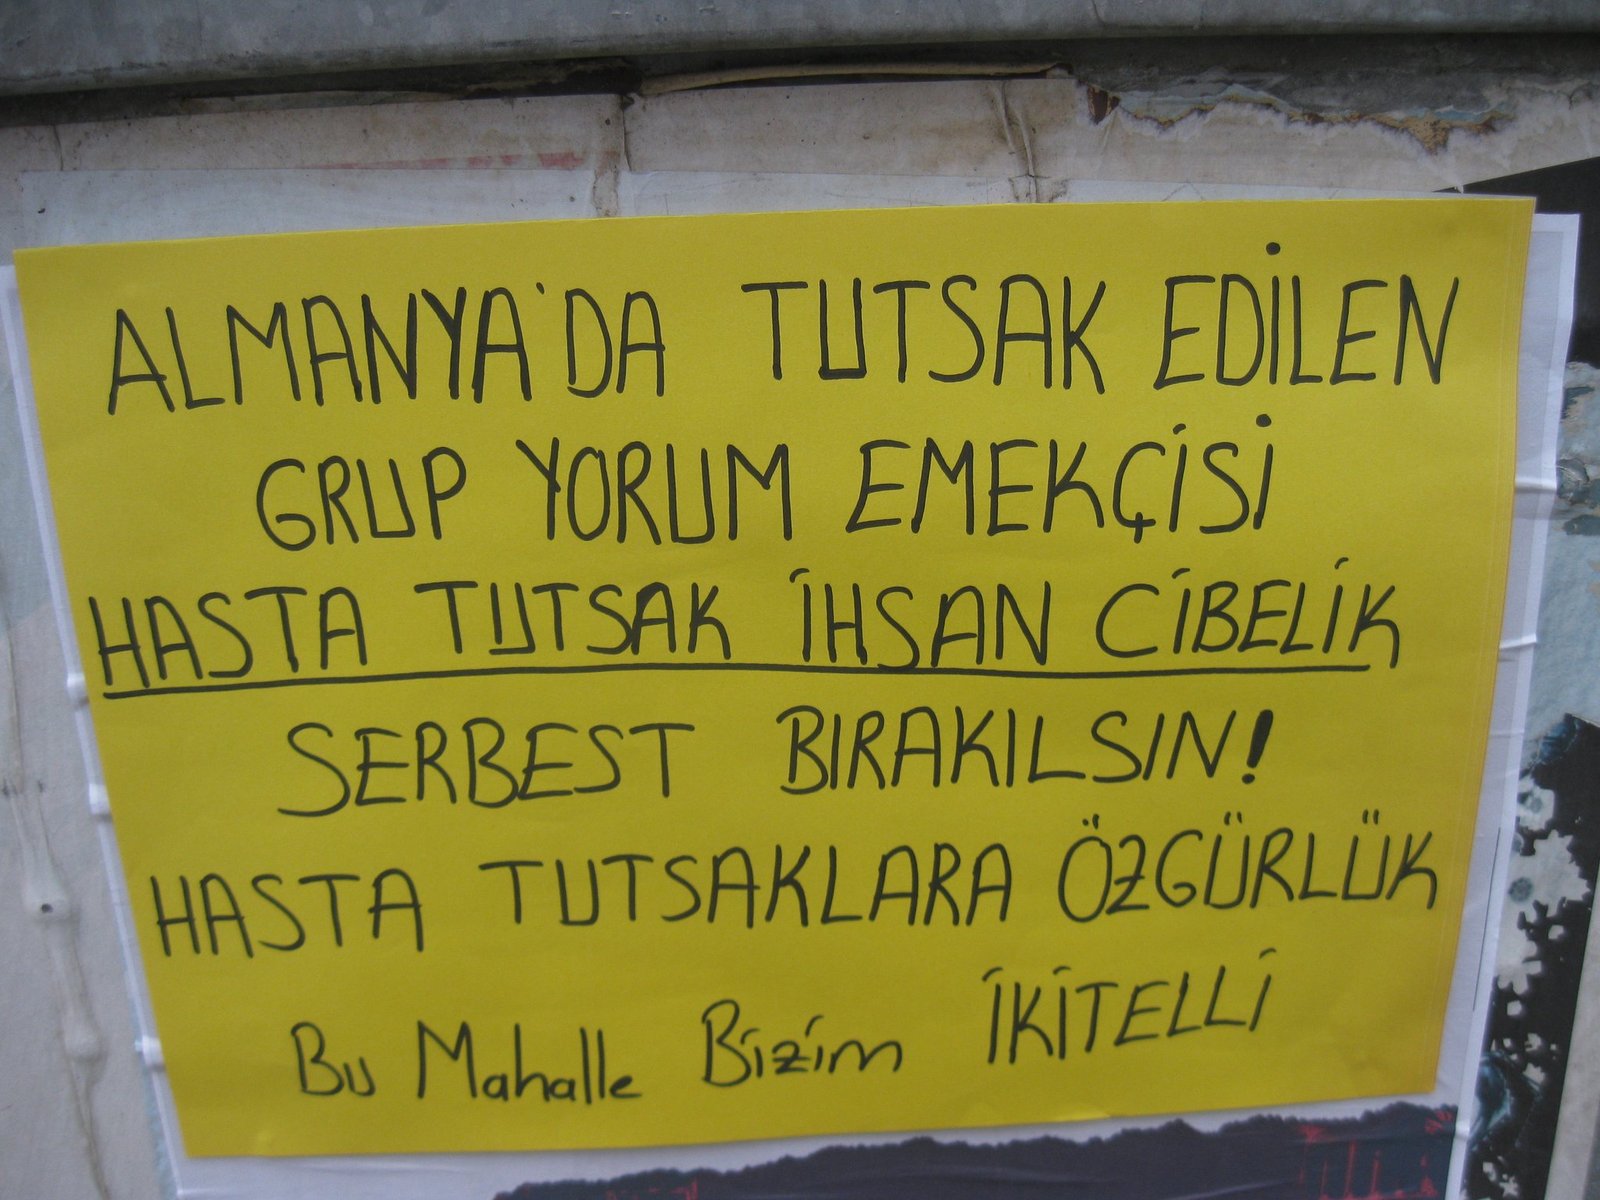 ALMANYA'DA TUTSAK EDİLEN
GRUP YORUM EMEKÇİSİ
HASTA TUTSAK İHSAN CİBELİK
SERBEST BIRAKILSIN!
HASTA TUTSAKLARA ÖZGÜRLÜK
Bu Mahalle Bizim İKİTELLİ